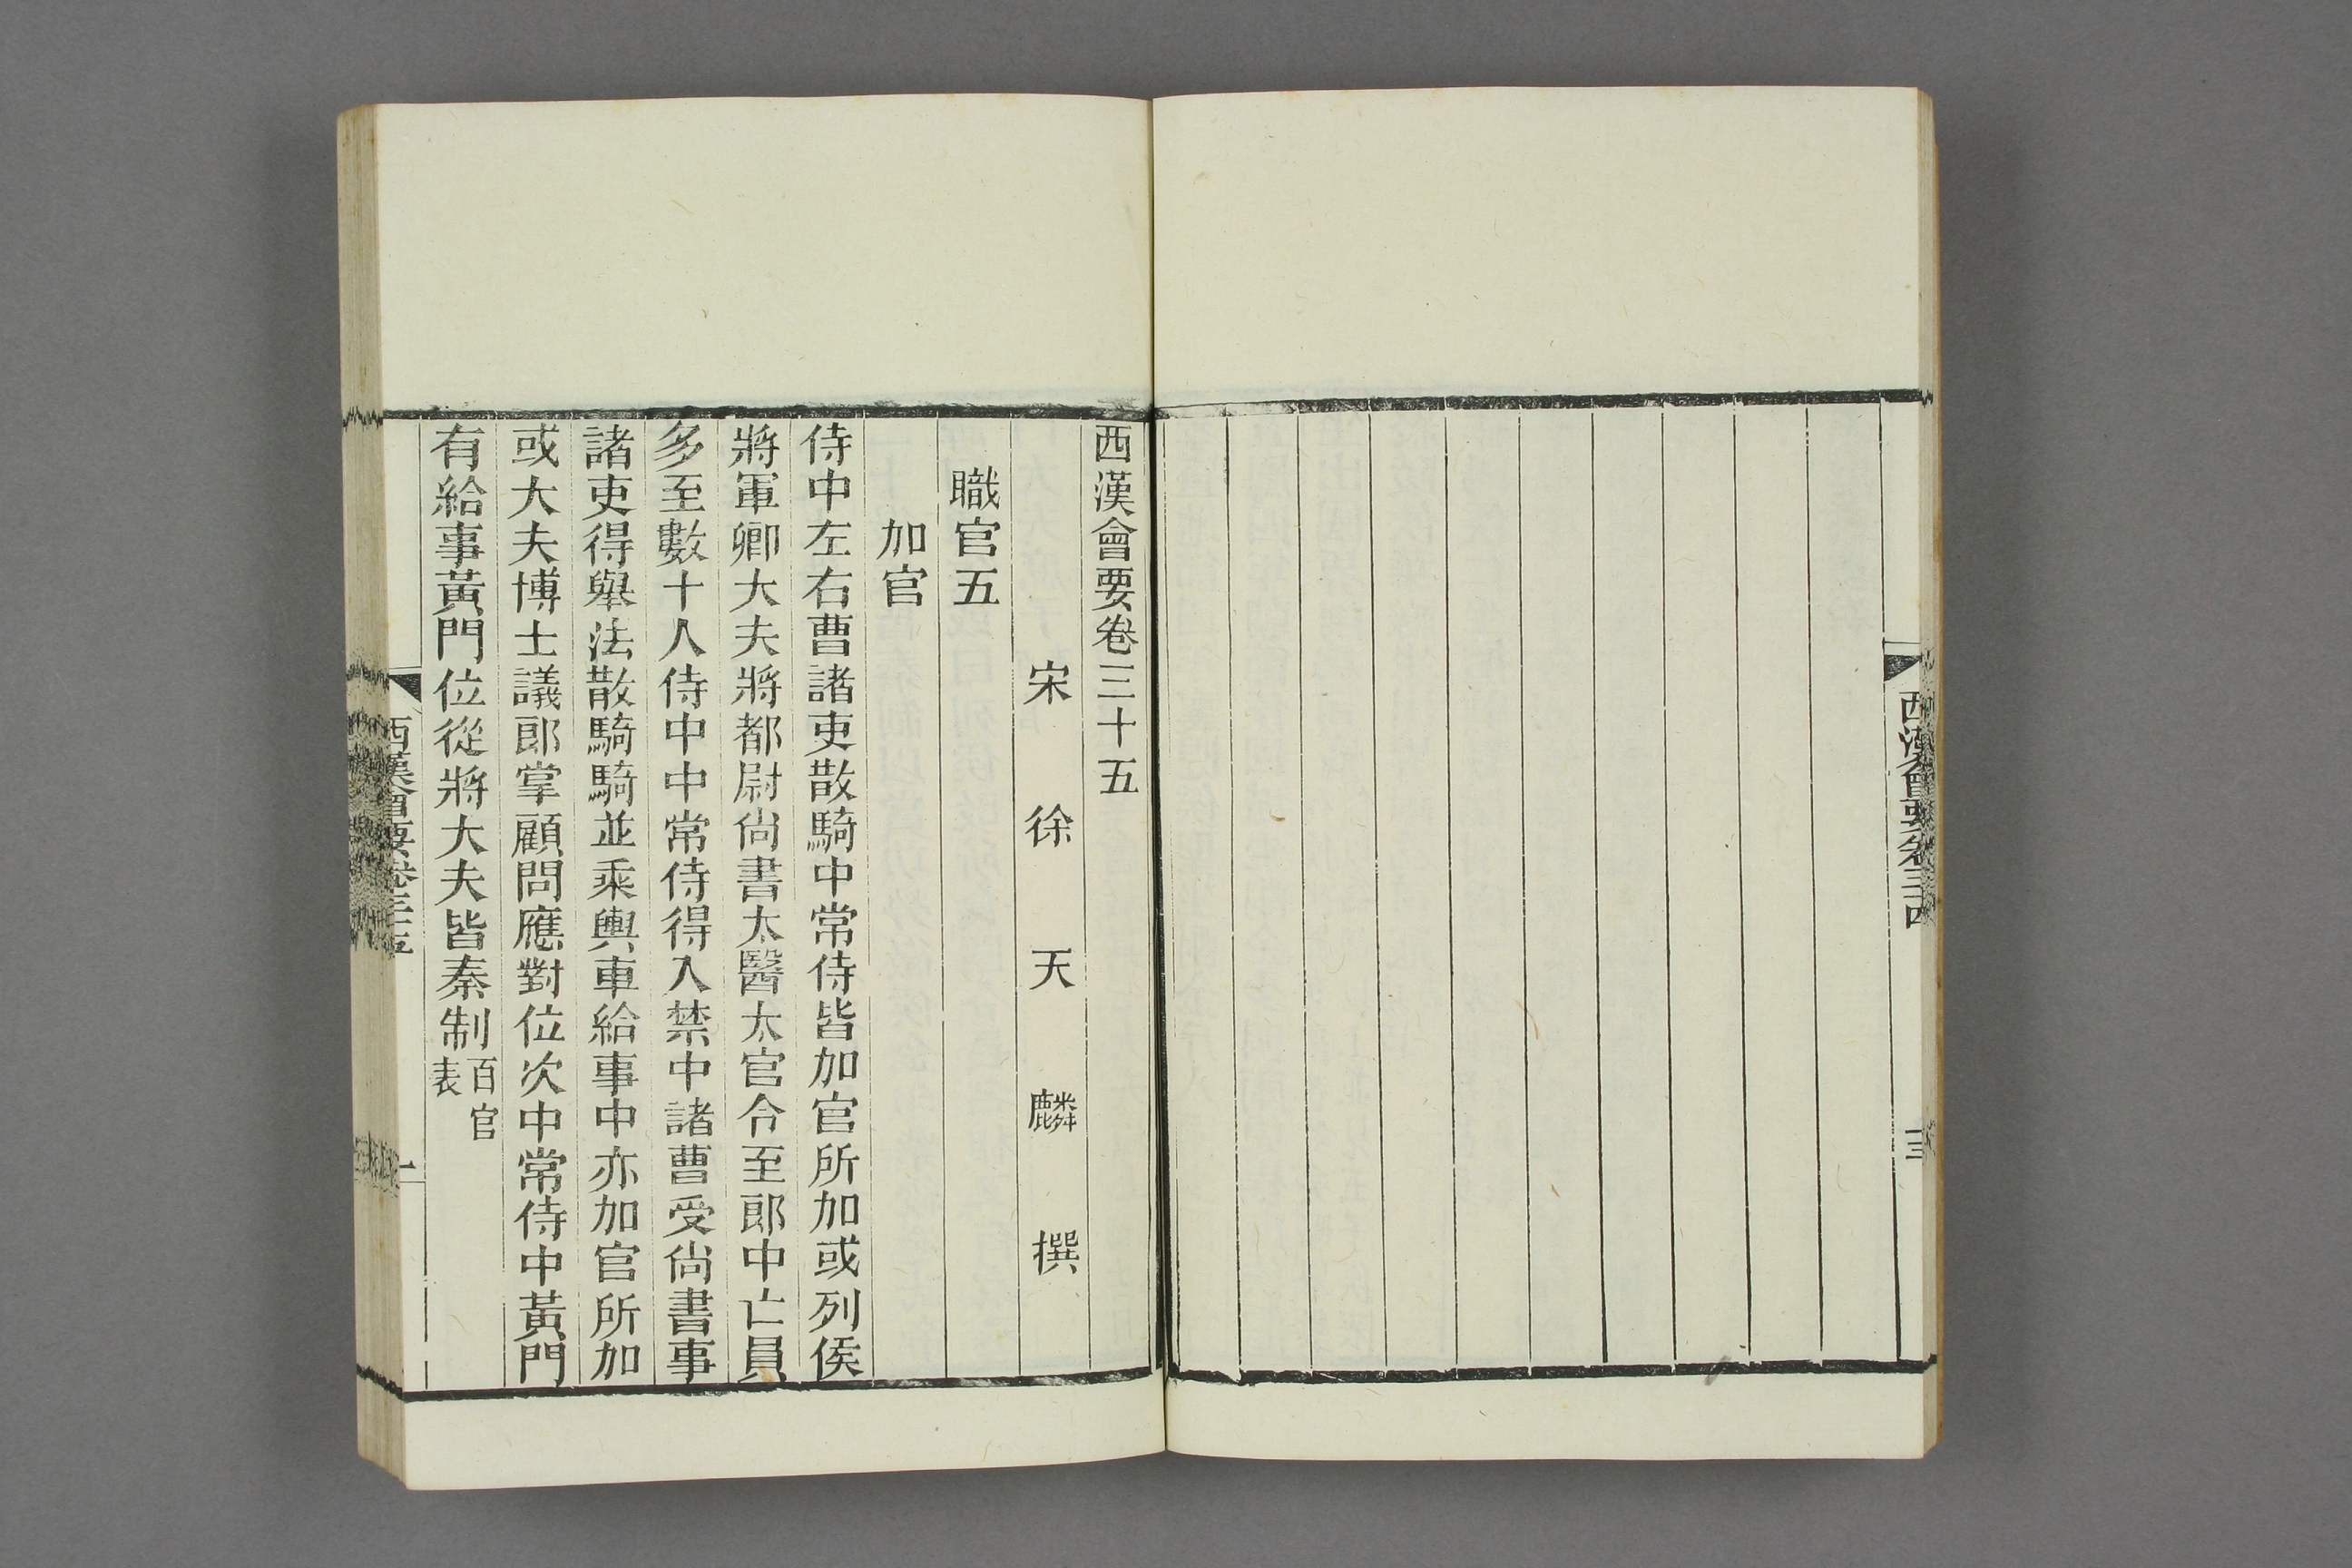 西漢會要卷三十四
三
西漢會要卷三十五
宋徐天麟撰
職官五
加官
侍中左右曹諸吏散騎中常侍皆加官所加或列侯
將軍卿大夫將都尉尙書太醫太官令至郎中亡員
多至數十人侍中中常侍得入禁中諸曹受尙書事
諸吏得舉法散騎騎並乘輿車給事中亦加官所加
或大夫博士議郎掌顧問應對位次中常侍中黃門
有給事黃門位從將大夫皆秦制百官表
西漢會要卷三十五
一